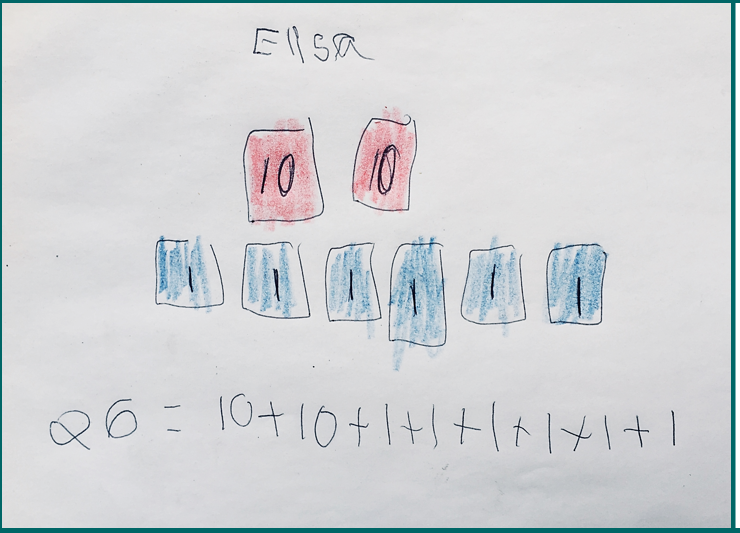 Elisa
10 10
1 1 1 1 1 1
26 = 10+10+1+1+1+1+1+1